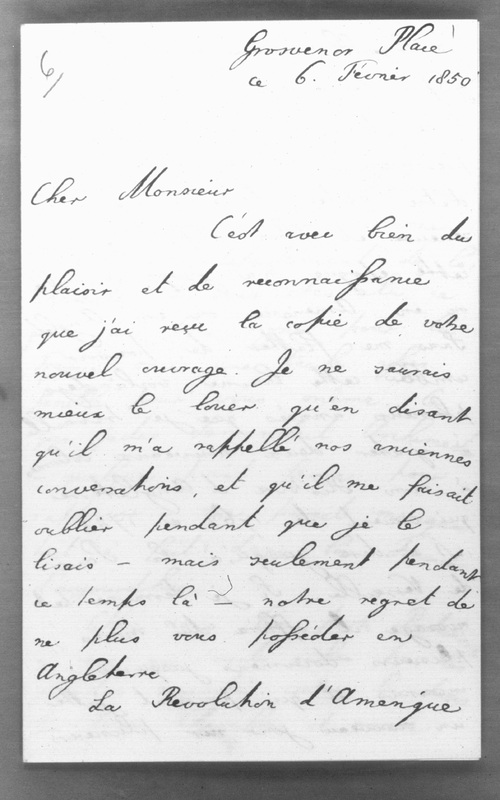 6,
Grosvenor Place
ce 6. Février 1850
Cher Monsieur
C'est avec bien du
plaisir et de reconnaissance
que j'ai reçu la copie de votre
nouvel ouvrage. Je ne saurais
mieux le louer qu'en disant
qu'il m'a rappellé nos anciennes
conversations, et qu'il me faisait
oublier pendant que je le
lisais – mais seulement pendant
ce temps là – notre regret de
ne plus vous posséder en
Angleterre.
La Revolution d'Amerique